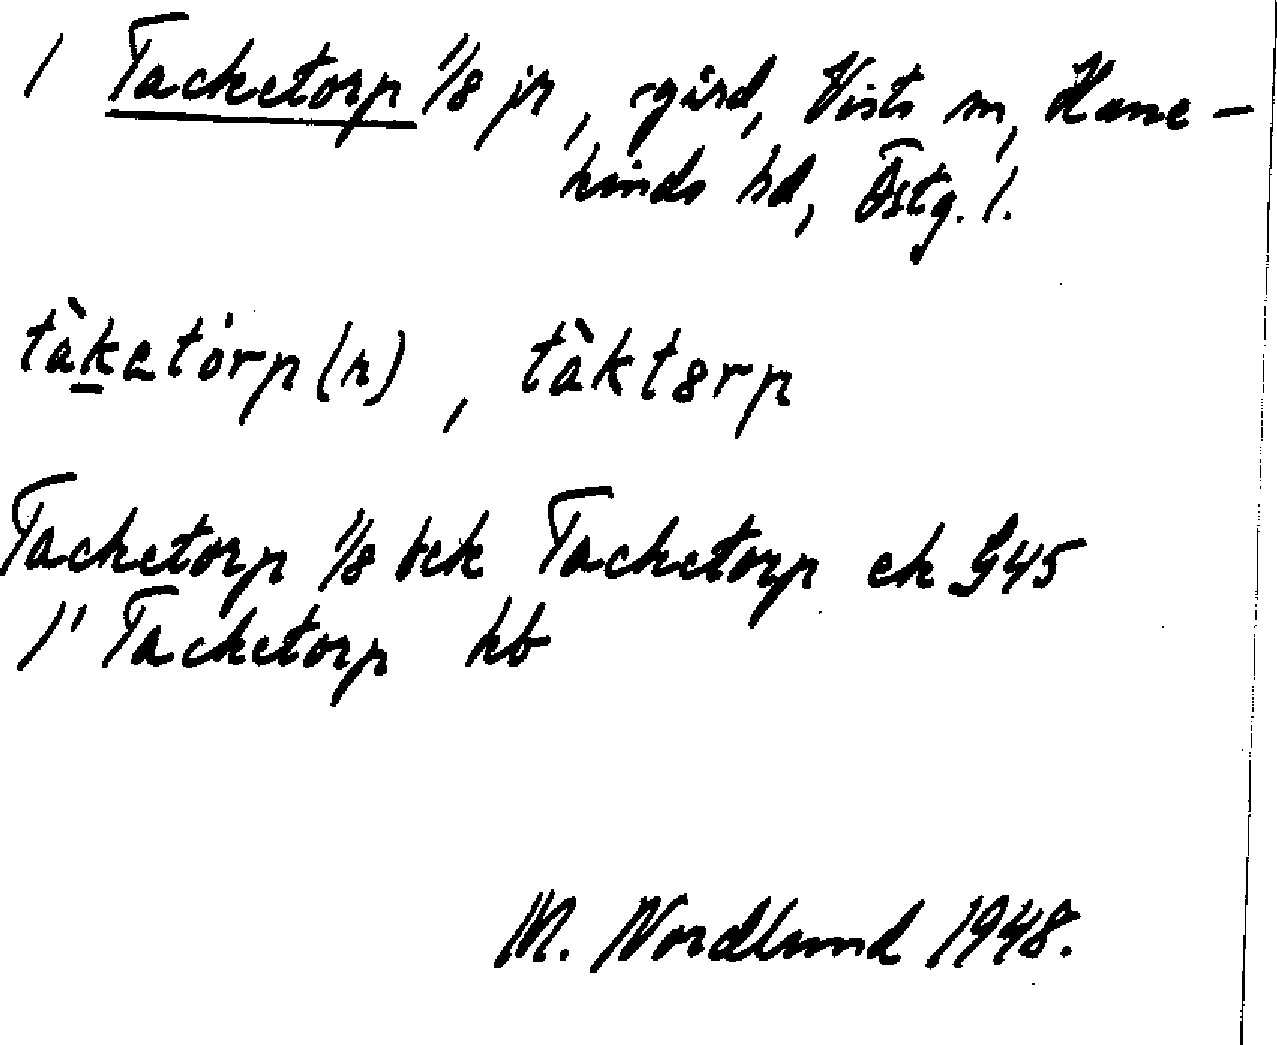 1 Tacketorp 1/8 jr, gård, Vists sn, Hane-
kinds hd, Östg. l.
tàketórp(n), tàktɞrp
Tacketorp 1/8 bek Tacketorp ek G45
1" Tacketorp hb
M. Nordlund 1948.